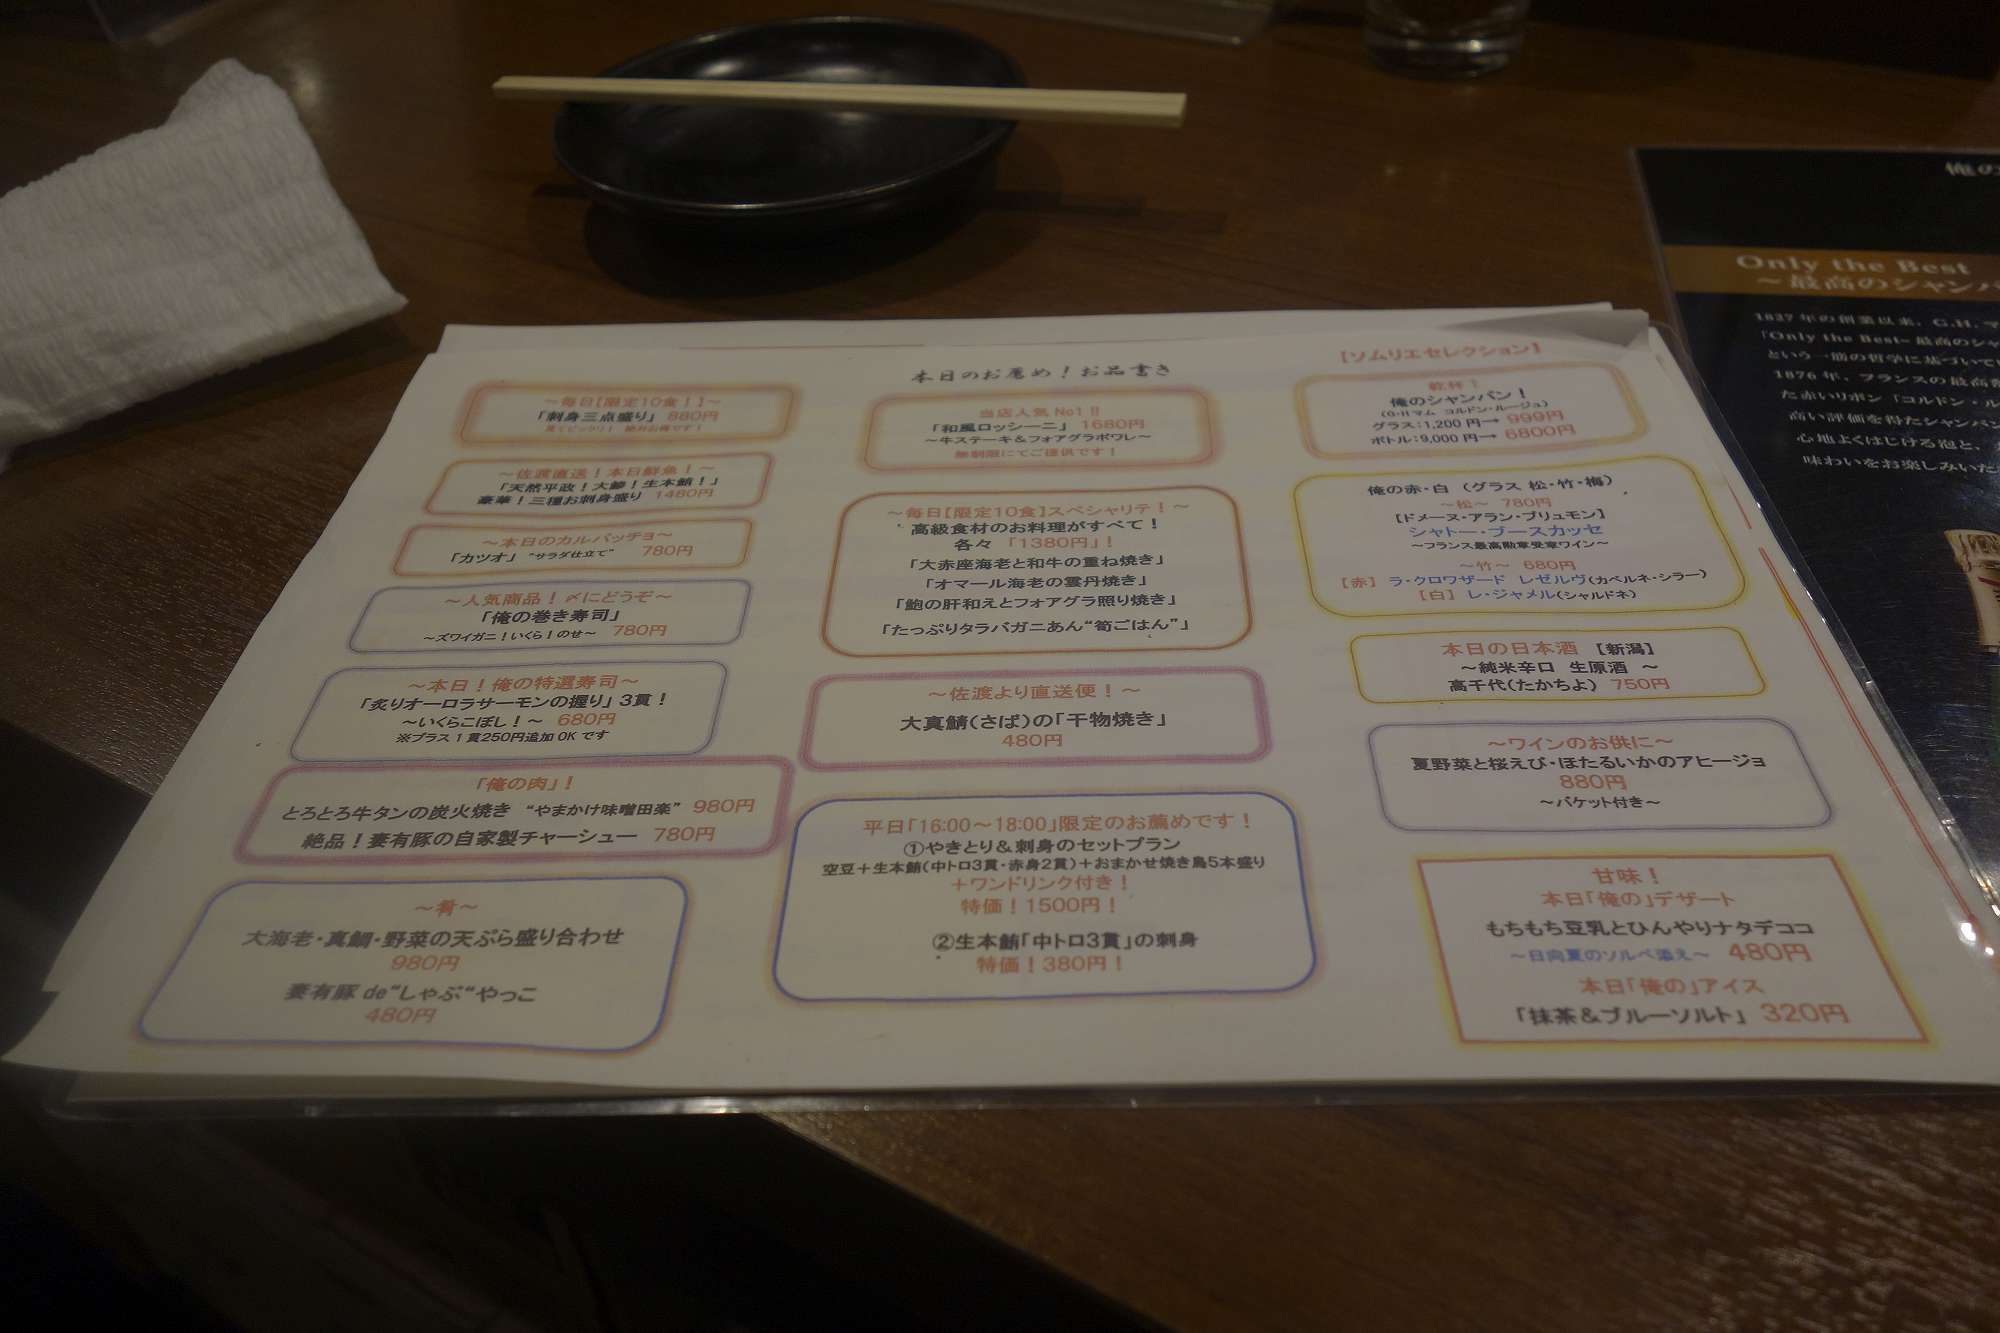 本日のお薦め！お品書き
～毎日【限定10食！】～
「刺身三点盛り」 880円
見てビックリ！ 絶対お得です！
～佐渡直送！本日鮮魚！～
「天然平政！大鯵！生本鮪！」
豪華！三種お刺身盛り 1480円
～本日のカルパッチョ～
「カツオ」 “サラダ仕立て” 780円
～人気商品！〆にどうぞ～
「俺の巻き寿司」
～ズワイガニ！いくら！のせ～ 780円
～本日！俺の特選寿司～
「炙りオーロラサーモンの握り」3貫！
～いくらこぼし！～ 680円
※プラス1貫250円追加OKです
「俺の肉」！
とろとろ牛タンの炭火焼き “やまかけ味噌田楽” 980円
絶品！妻有豚の自家製チャーシュー 780円
～肴～
大海老・真鯛・野菜の天ぷら盛り合わせ
980円
妻有豚de“しゃぶ“やっこ
480円
当店人気No1!!
「和風ロッシーニ」 1680円
～牛ステーキ＆フォアグラポワレ～
無制限にてご提供です！
～毎日【限定10食】スペシャリテ！～
高級食材のお料理がすべて！
各々「1380円」！
「大赤座海老と和牛の重ね焼き」
「オマール海老の雲丹焼き」
「鮑の肝和えとフォアグラ照り焼き」
「たっぷりタラバガニあん“筍ごはん”」
～佐渡より直送便！～
大真鯖(さば)の「干物焼き」
480円
平日「16:00～18:00」限定のお薦めです！
①やきとり＆刺身のセットプラン
空豆＋生本鮪(中トロ3貫・赤身2貫)＋おまかせ焼き鳥5本盛り
＋ワンドリンク付き！
特価！1500円！
②生本鮪「中トロ3貫」の刺身
特価！380円！
【ソムリエセレクション】
乾杯！
俺のシャンパン！
(G・Hマム コルドン・ルージュ)
グラス：1,200円→ 999円
ボトル：9,000円→ 6800円
俺の赤・白 (グラス 松・竹・梅)
～松～ 780円
【ドメーヌ・アラン・ブリュモン】
シャトー・ブースカッセ
～フランス最高勲章受章ワイン～
～竹～ 680円
【赤】 ラ・クロワザード レゼルヴ(カベルネ・シラー)
【白】レ・ジャメル(シャルドネ)
本日の日本酒 【新潟】
～純米辛口 生原酒 ～
高千代(たかちよ) 750円
～ワインのお供に～
夏野菜と桜えび・ほたるいかのアヒージョ
880円
～バケット付き～
甘味！
本日「俺の」デザート
もちもち豆乳とひんやりナタデココ
～日向夏のソルベ添え～ 480円
本日「俺の」アイス
「抹茶＆ブルーソルト」 320円
俺の
Only the Best
～最高のシャンパ
1827年の創業以来、G.H.マ
「Only the Best-最高のシャ
という一筋の哲学に基づいてい
1876年、フランスの最高
た赤いリボン「コルドン・ル
高い評価を得たシャンパン
心地よくはじける泡と、
味わいをお楽しみいた